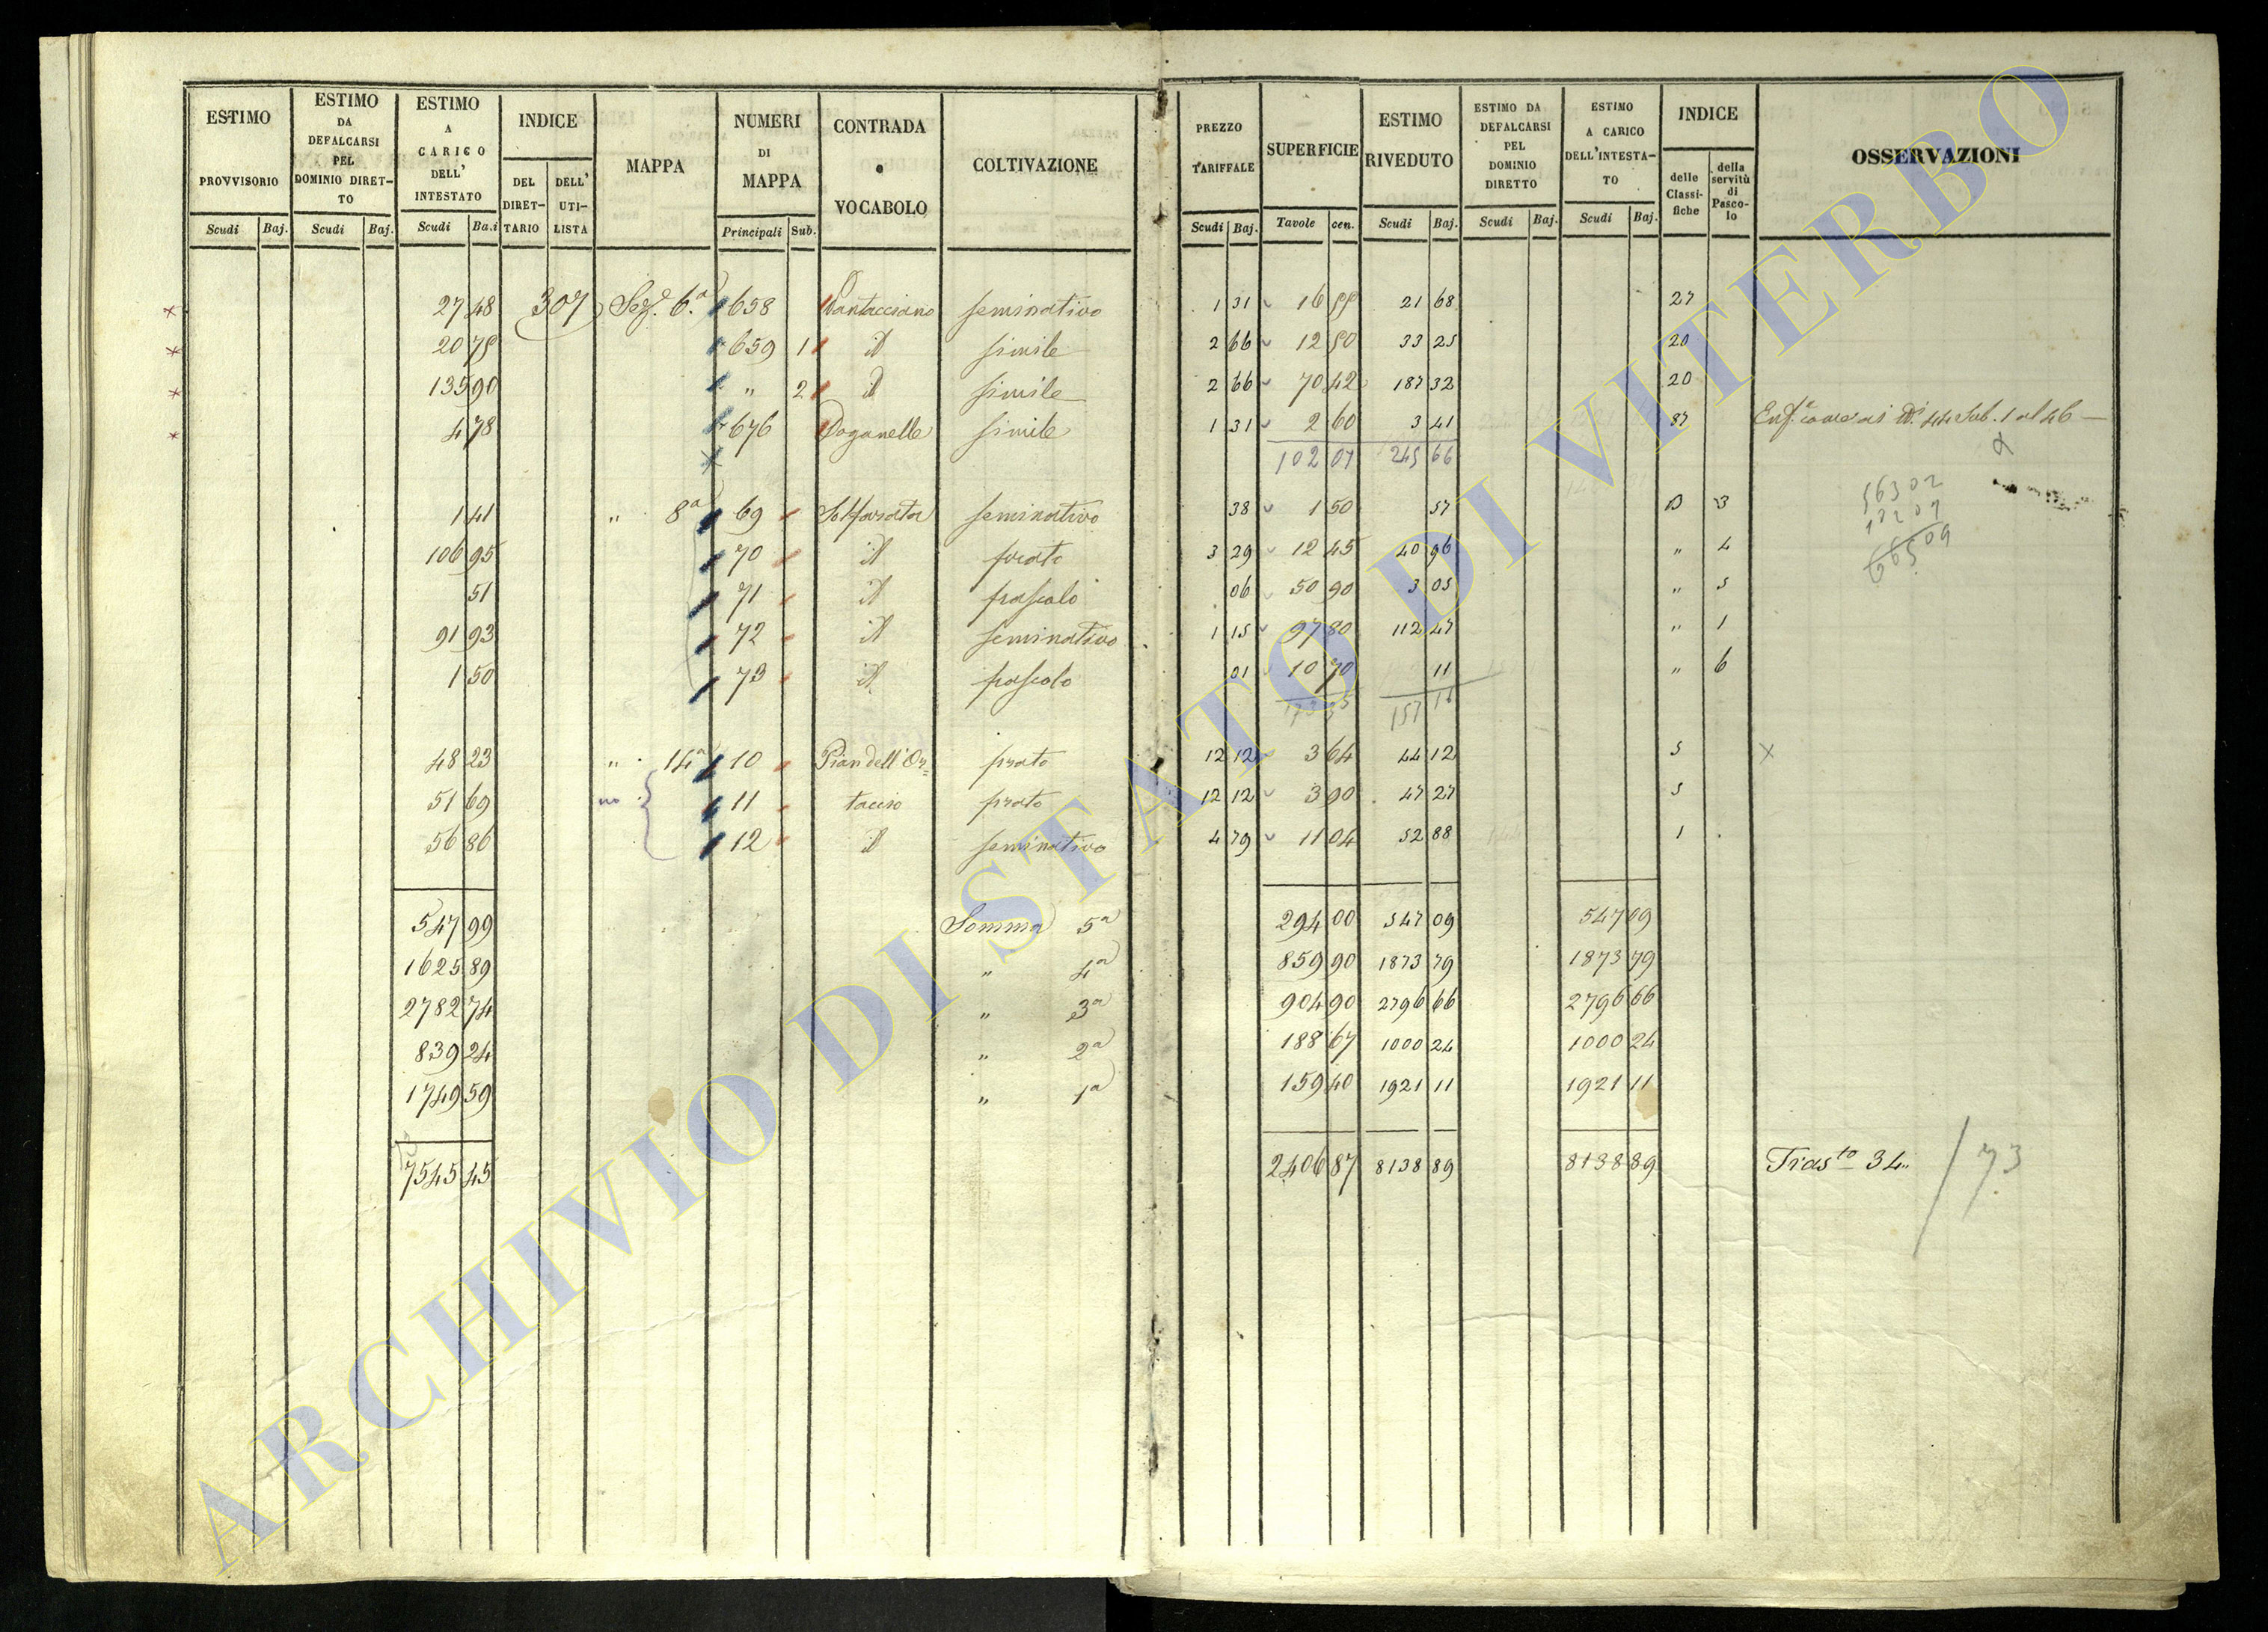 ESTIMO PROVVISORIO
ESTIMO DA DEFALCARSI PEL DOMINIO DIRET-TO
ESTIMO A CARICO DELL' INTESTATO
INDICE
DEL DIRET-TARIO
DELL' UTI-LISTA
MAPPA
NUMERI DI MAPPA
CONTRADA o VOCABOLO
COLTIVAZIONE
Scudi Baj. Scudi Baj. Scudi Ba.i Principali Sub.
PREZZO TARIFFALE
SUPERFICIE
ESTIMO RIVEDUTO
ESTIMO DA DEFALCARSI PEL DOMINIO DIRETTO
ESTIMO A CARICO DELL'INTESTA-TO
INDICE
delle Classi-fiche
della servitù di Pasco-lo
OSSERVAZIONI
Scudi Baj. Tavole cen. Scudi Baj. Scudi Baj. Scudi Baj.
27 48 307 Sez.e 6.a 658 seminativo 1 31 21 68 27
659 1 id simile 2 66 12 50 33 25 20
135 90 " 2 id simile 2 66 70 42 187 32 20
4 78 676 Doganelle simile 1 31 2 60 3 41 44 Sub. 1 al 46
102 07 245 66
1 41 " 8a 69 Solfarata seminativo 38 1 50 57 3
106 95 70 id prato 3 29 12 45 40 96 " 4
51 71 id pascolo 06 50 90 3 05 " 5
91 93 72 id seminativo 1 15 97 80 112 47 " 1
1 50 73 id pascolo 01 10 70 11 " 6
157 16
48 23 " 14a 10 Pian dell'Or= prato 12 12 3 64 44 12 5 x
51 69 11 taccio prato 12 12 3 90 47 27 5
56 86 12 id seminativo 4 79 11 04 52 88 1
547 99 Somma 5a 294 00 547 09 547 09
1625 89 " 4a 859 90 1873 79 1873 79
2782 74 " 3a 904 90 2796 66 2796 66
839 24 " 2a 188 67 1000 24 1000 24
1749 59 " 1a 159 40 1921 11 1921 11
7545 45 2406 87 8138 89 8138 89 Trasto 34 / 73
ARCHIVIO DI STATO DI VITERBO